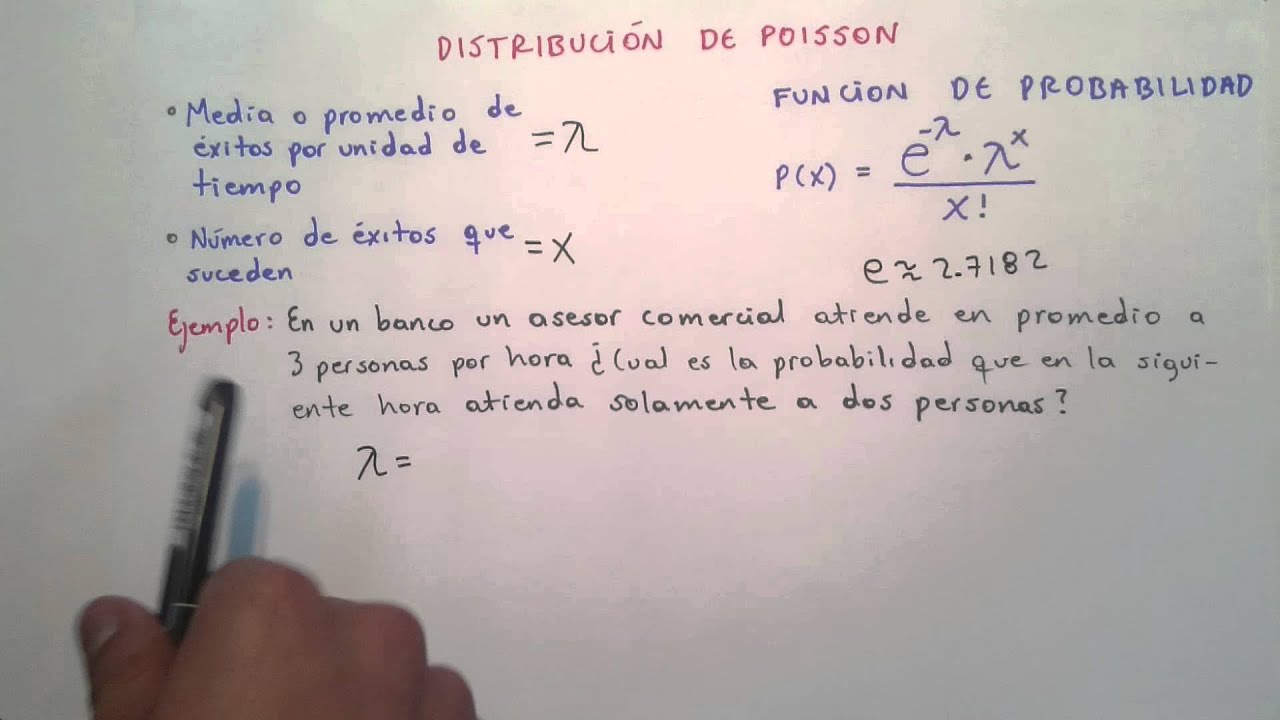 DISTRIBUCIÓN DE POISSON
• Media o promedio de
éxitos por unidad de
tiempo
= λ
• Número de éxitos que
suceden
= X
FUNCION DE PROBABILIDAD
P(X) = e^-λ · λ^x / X!
e ≈ 2.7182
Ejemplo: En un banco un asesor comercial atiende en promedio a
3 personas por hora ¿Cual es la probabilidad que en la sigui-
ente hora atienda solamente a dos personas?
λ =